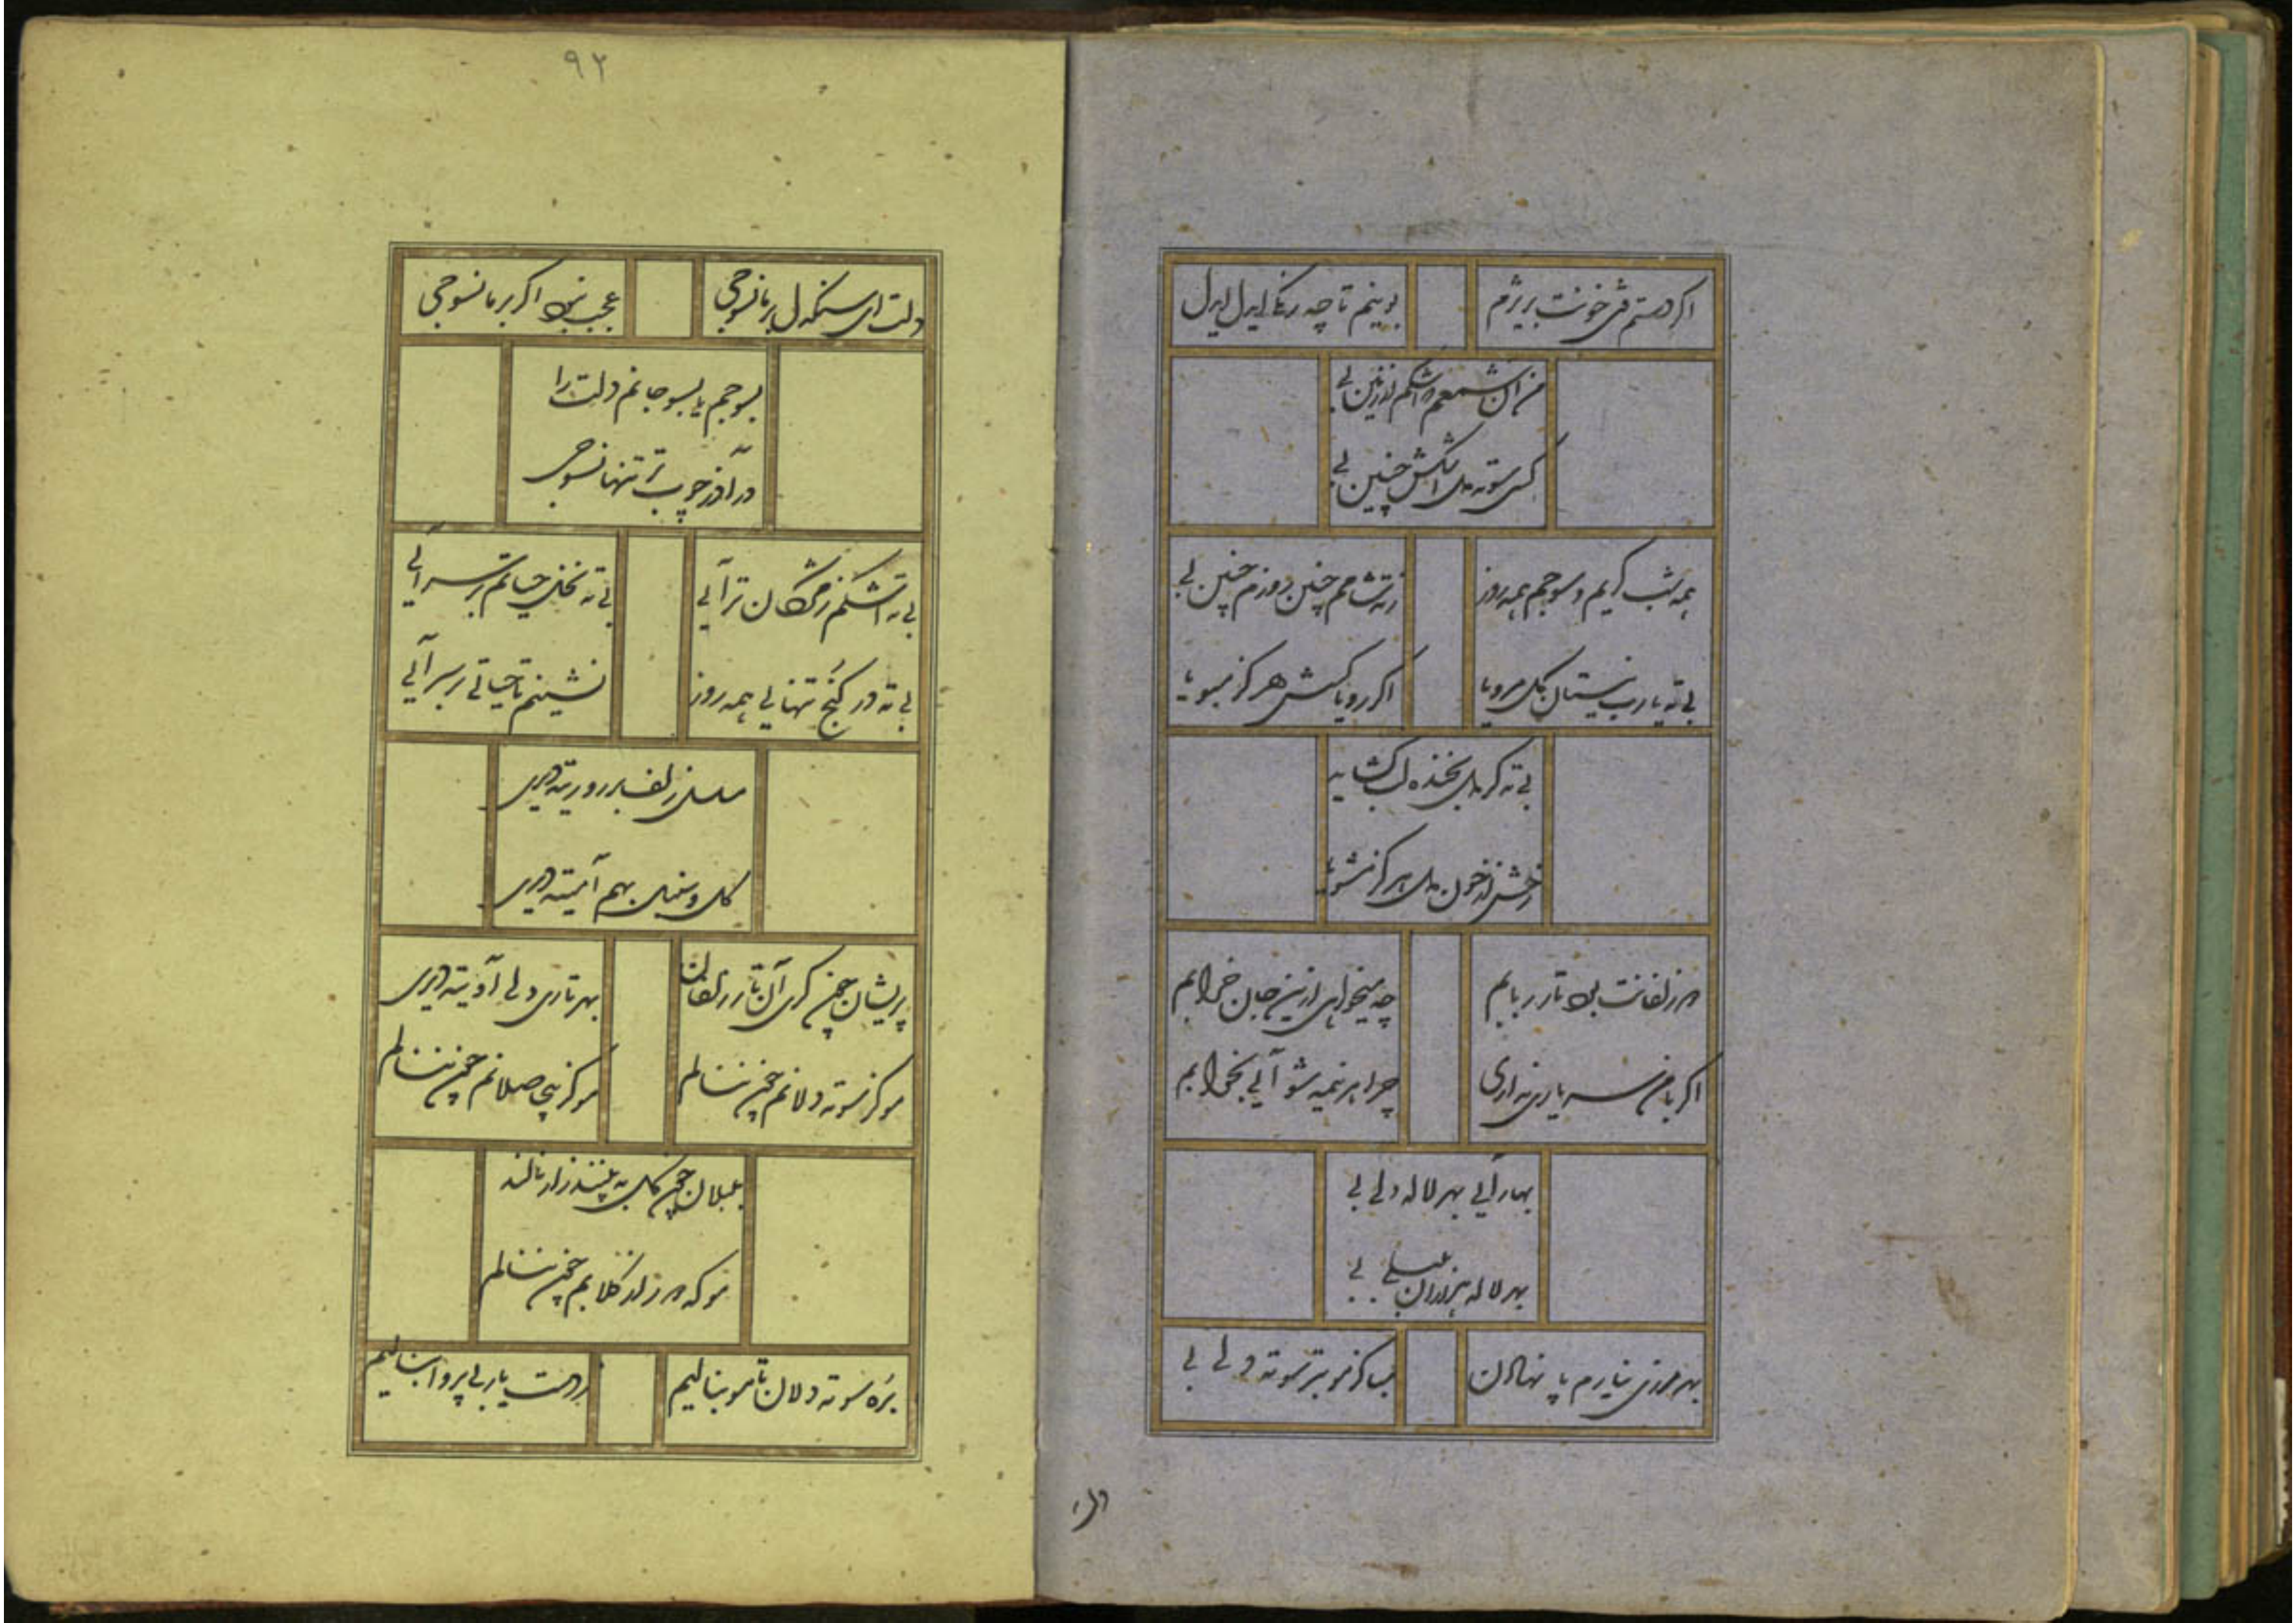 اگر دستم فتی خونت بریژم
بوینم تا چه رنگی ای دل ای دل
من آن شمعم که اشکم آذرین بی
کسی سوته دل اشکش چنین بی
همه شب گریم و سوجم همه روز
زته شامم چنین روزم چنین بی
بی ته یارب ببستان گل مرویا
اگر رویا کسش هرگز مبویا
بی ته گر دل بخنده لب گشایه
رخش از خون دل هرگز مشویا
دو زلفانت بود تار ربابم
چه میخواهی ازین جان خرابم
اگر با من سر یاری نداری
چرا هر نیمه شو آئی بخوابم
بهار آئی بهر لاله دلی بی
بهر لاله هزاران بلبلی بی
بهر مرزی نیارم پا نهادن
مباد کز مو بتر سوته دلی بی
دلت
۹۲
دلت ای سنگدل بر ما نسوجی
عجب نبود اگر بر ما نسوجی
بسوجم یا بسوجانم دلت را
در آذر چوب تر تنها نسوجی
بی ته اشکم ز مژگان تر آئی
بی ته نخل حیاتم بی سر آئی
بی ته در کنج تنهایی همه روز
نشینم تا حیاتی بر سر آئی
مسلسل زلف بر رو ریته دیری
گل و سنبل بهم آمیته دیری
پریشان چون کری آن تار زلفان
بهر تاری دلی آویته دیری
مو کز سوته دلانم چون ننالم
مو کز بی حاصلانم چون ننالم
بلبلان چمن گل به پلنند زار نالند
مو که دور از گلانم چون ننالم
بره سوته دلان تا مو بنالیم
ز دست یار بی پروا بنالیم